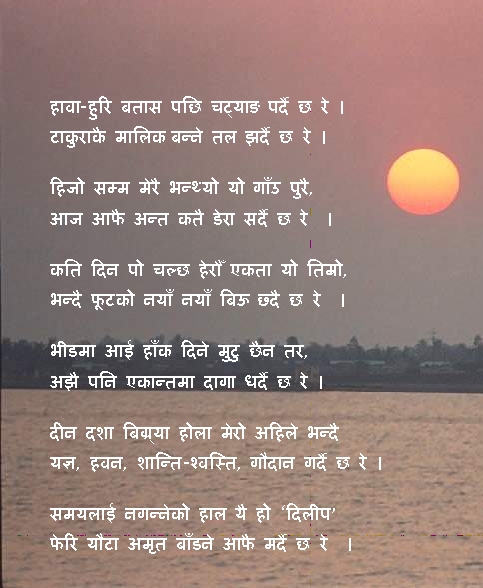 हावा-हुरि बतास पछि चट्याङ पर्दै छ रे ।
टाकुराकै मालिक बन्ने तल झर्दै छ रे ।
हिजो सम्म मेरै भन्थ्यो यो गाँउ पुरै,
आज आफै अन्त कतै डेरा सर्दै छ रे ।
कति दिन पो चल्छ हेरौँ एकता यो तिम्रो,
भन्दै फूटको नयाँ नयाँ बिऊ छ्दै छ रे ।
भीडमा आई हाँक दिने मुटु छैन तर,
अझै पनि एकान्तमा दागा धर्दै छ रे ।
दीन दशा बिग्र्या होला मेरो अहिले भन्दै
यज्ञ, हवन, शान्ति-श्वस्ति, गौदान गर्दै छ रे ।
समयलाई नगन्नेको हाल यै हो ‘दिलीप’
फेरि यौटा अमृत बाँडने आफै मर्दै छ रे ।